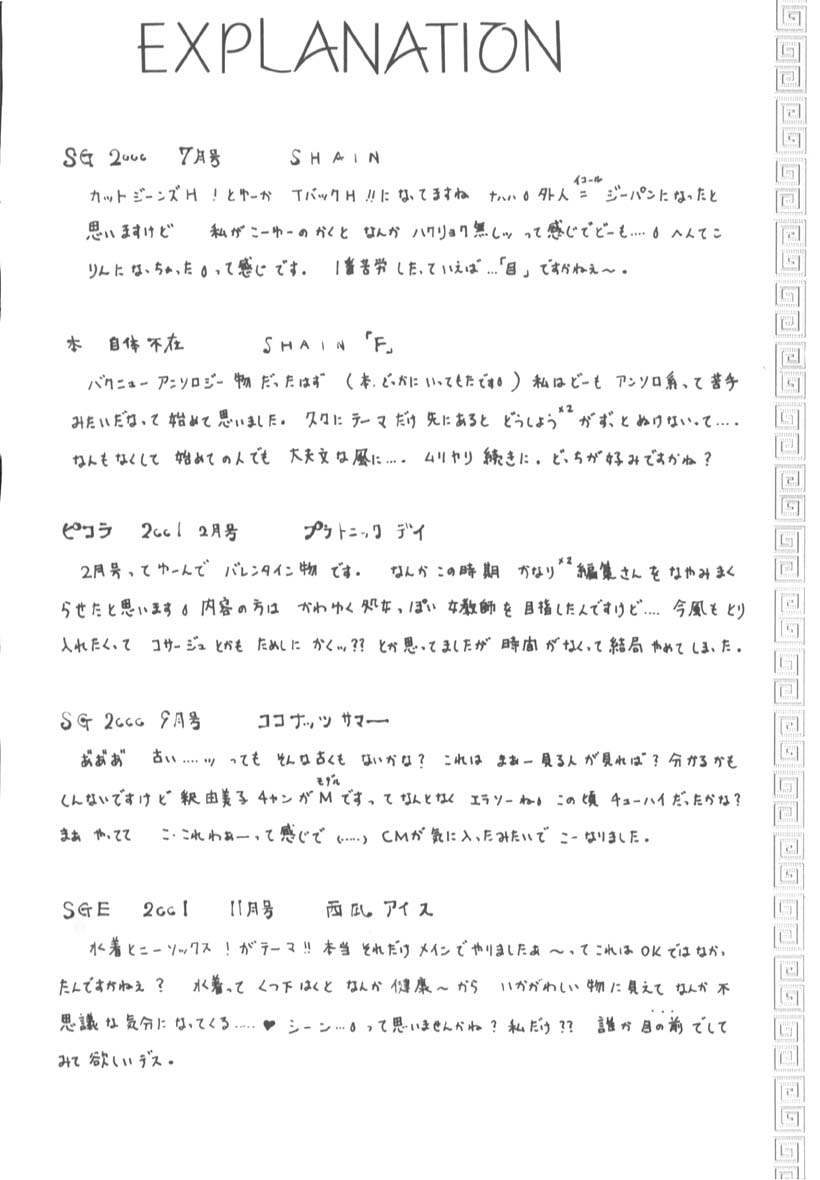 EXPLANATION
SG 2000 7月号 SHAIN
カットジーンズH！とゆーか TバックH!!になってますね ナハハ。外人＝ジーパンになったと
イコール
思いますけど 私がこーゆーのかくと なんか ハクリョク無しッって感じでどーも....。へんてこ
りんになっちゃった。って感じです。1番苦労したっていえば…「目」ですかねぇ〜。
本 自体不在 SHAIN「F」
バクニューアンソロジー物だったはず（本、どっかにいってもたです。）私はどーも アンソロ系って苦手
みたいだなって始めて思いました。 テーマだけ先にあると どうしよう×2がずっとぬけないって….
なんもなくして 始めての人でも 大丈夫な風に…. ムリヤリ続きに。どっちが好みですかね？
ピコラ 2001 2月号 プラトニック デイ
2月号ってゆーんで バレンタイン物です。 なんかこの時期 かなり×2編集さんをなやみまく
らせたと思います。内容の方は かわゆく処女っぽい女教師を目指したんですけど…. 今風もとり
入れたくって コサージュとかもためしにかくッ??とか思ってましたが 時間がなくって結局やめてしまった。
SG 2000 9月号 ココナッツ サマー
あ゛あ゛あ゛ 古い….ッ っても そんな古くもないかな？ これは まぁー見る人が見れば？分かるかも
しんないですけど 釈由美子チャンがMですって なんとなく エラソーね。この頃 チューハイだったかな？
モデル
まぁ やってて こ・これわぁーって感じで (…..) CMが気に入ったみたいで こーなりました。
SGE 2001 11月号 西瓜 アイス
水着とニーソックス！がテーマ!! 本当 それだけメインでやりましたぁ〜ってこれは OKではなかっ
たんですかねぇ？ 水着って くつ下はくと なんか 健康〜から いかがわしい物に見えて なんか不
思議な気分になってくる…..♥ シーン…。って思いませんかね？私だけ?? 誰か目の前でして
みて欲しいデス。